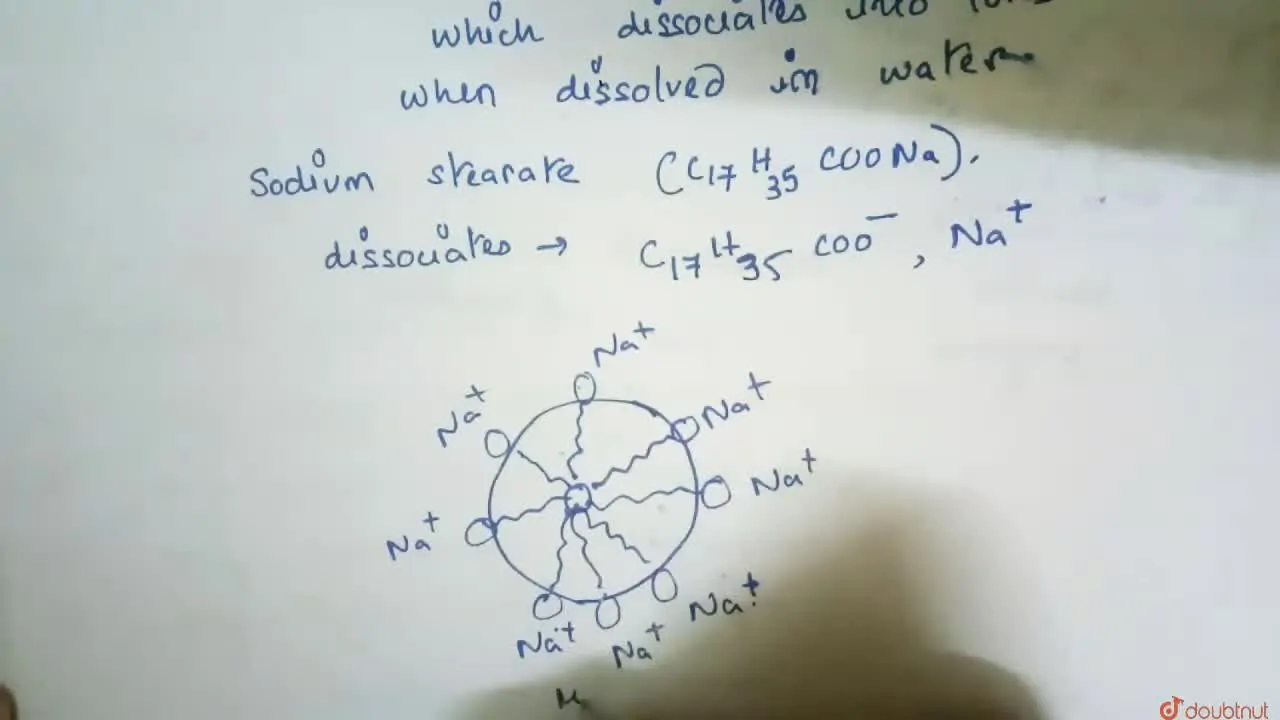 which dissociates into ions
when dissolved in water
Sodium stearate (C17H35COONa).
dissociates → C17H35COO⁻, Na⁺
Na⁺
Na⁺
Na⁺
Na⁺
Na⁺
Na⁺
Na⁺
Na⁺
doubtnut